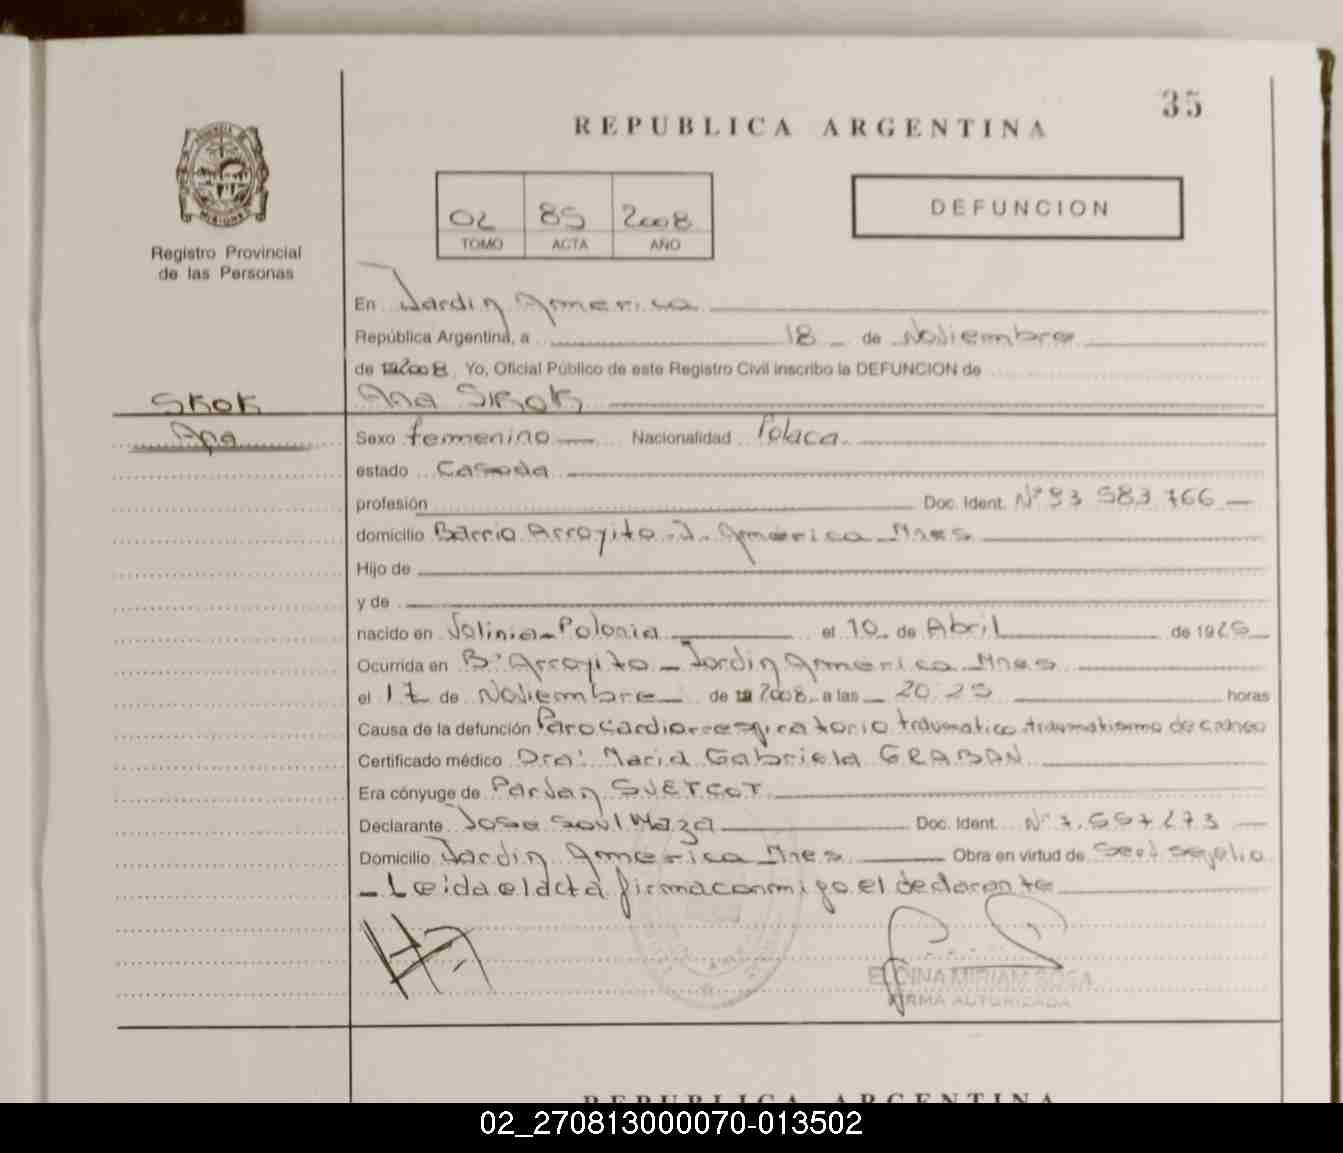 35
REPUBLICA ARGENTINA
MISIONES
Registro Provincial
de las Personas
02 85 2008
TOMO ACTA AÑO
DEFUNCION
En Jardin America
República Argentina, a 18 de Noviembre
de 2008 Yo, Oficial Público de este Registro Civil inscribo la DEFUNCION de
SKOK
Ana
Ana SKOK
Sexo femenino Nacionalidad Polaca
estado Casada
profesión Doc. Ident. Nº 93 583 766
domicilio Barrio Arroyito - J. América Mnes
Hijo de
y de
nacido en Volinia - Polonia el 10 de Abril de 1926
Ocurrida en Bº Arroyito - Jardin América Mnes
el 17 de Noviembre de 2008 a las 20 25 horas
Causa de la defunción Parocardiorrespiratorio traumatico traumatismo de craneo
Certificado médico Dra: Maria Gabriela GRABAN
Era cónyuge de SVETCOT
Declarante Jose Maza Doc. Ident. Nº 7.557273
Domicilio Jardin America Mnes Obra en virtud de sepelio
- Leida el acta firma conmigo el declarante
MIRIAM SOSA
FIRMA AUTORIZADA
REPUBLICA ARGENTINA
02_270813000070-013502